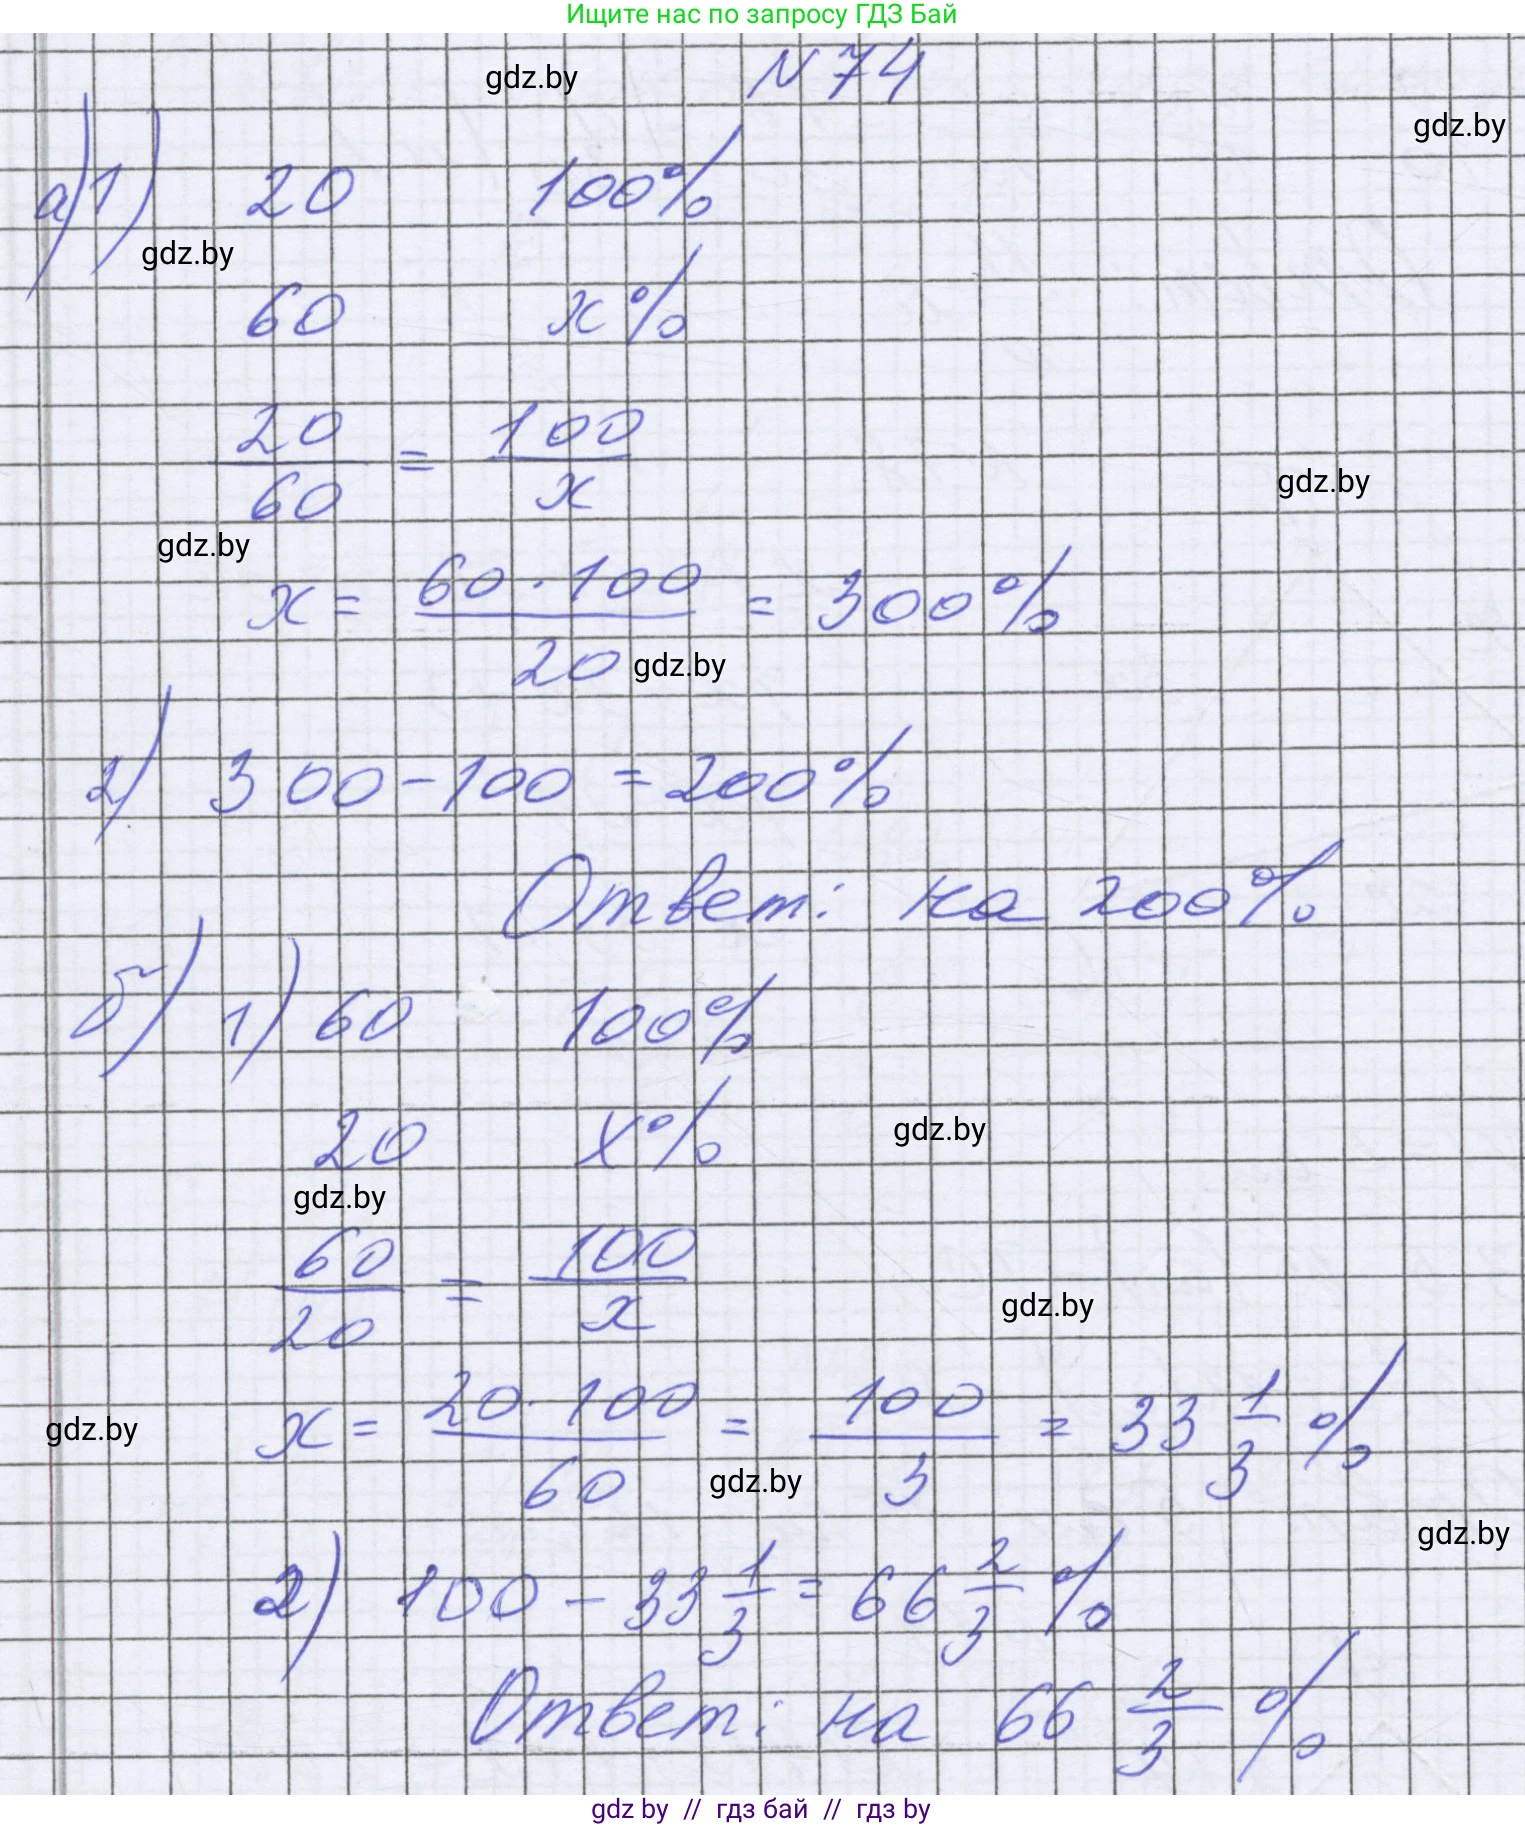 Ищите нас по запросу ГДЗ Бай
gdz.by
N 74
gdz.by
а) 1) 20 100%
gdz.by
60 x%
20/60 = 100/x
gdz.by
gdz.by
x = 60·100/20 = 300%
gdz.by
2) 300-100 = 200%
Ответ: на 200%
б) 1) 60 100%
20 x%
gdz.by
gdz.by
60/20 = 100/x
gdz.by
x = 20·100/60 = 100/3 = 33 1/3 %
gdz.by
gdz.by
gdz.by
2) 100 - 33 1/3 = 66 2/3 %
Ответ: на 66 2/3 %
gdz by // гдз бай // гдз by